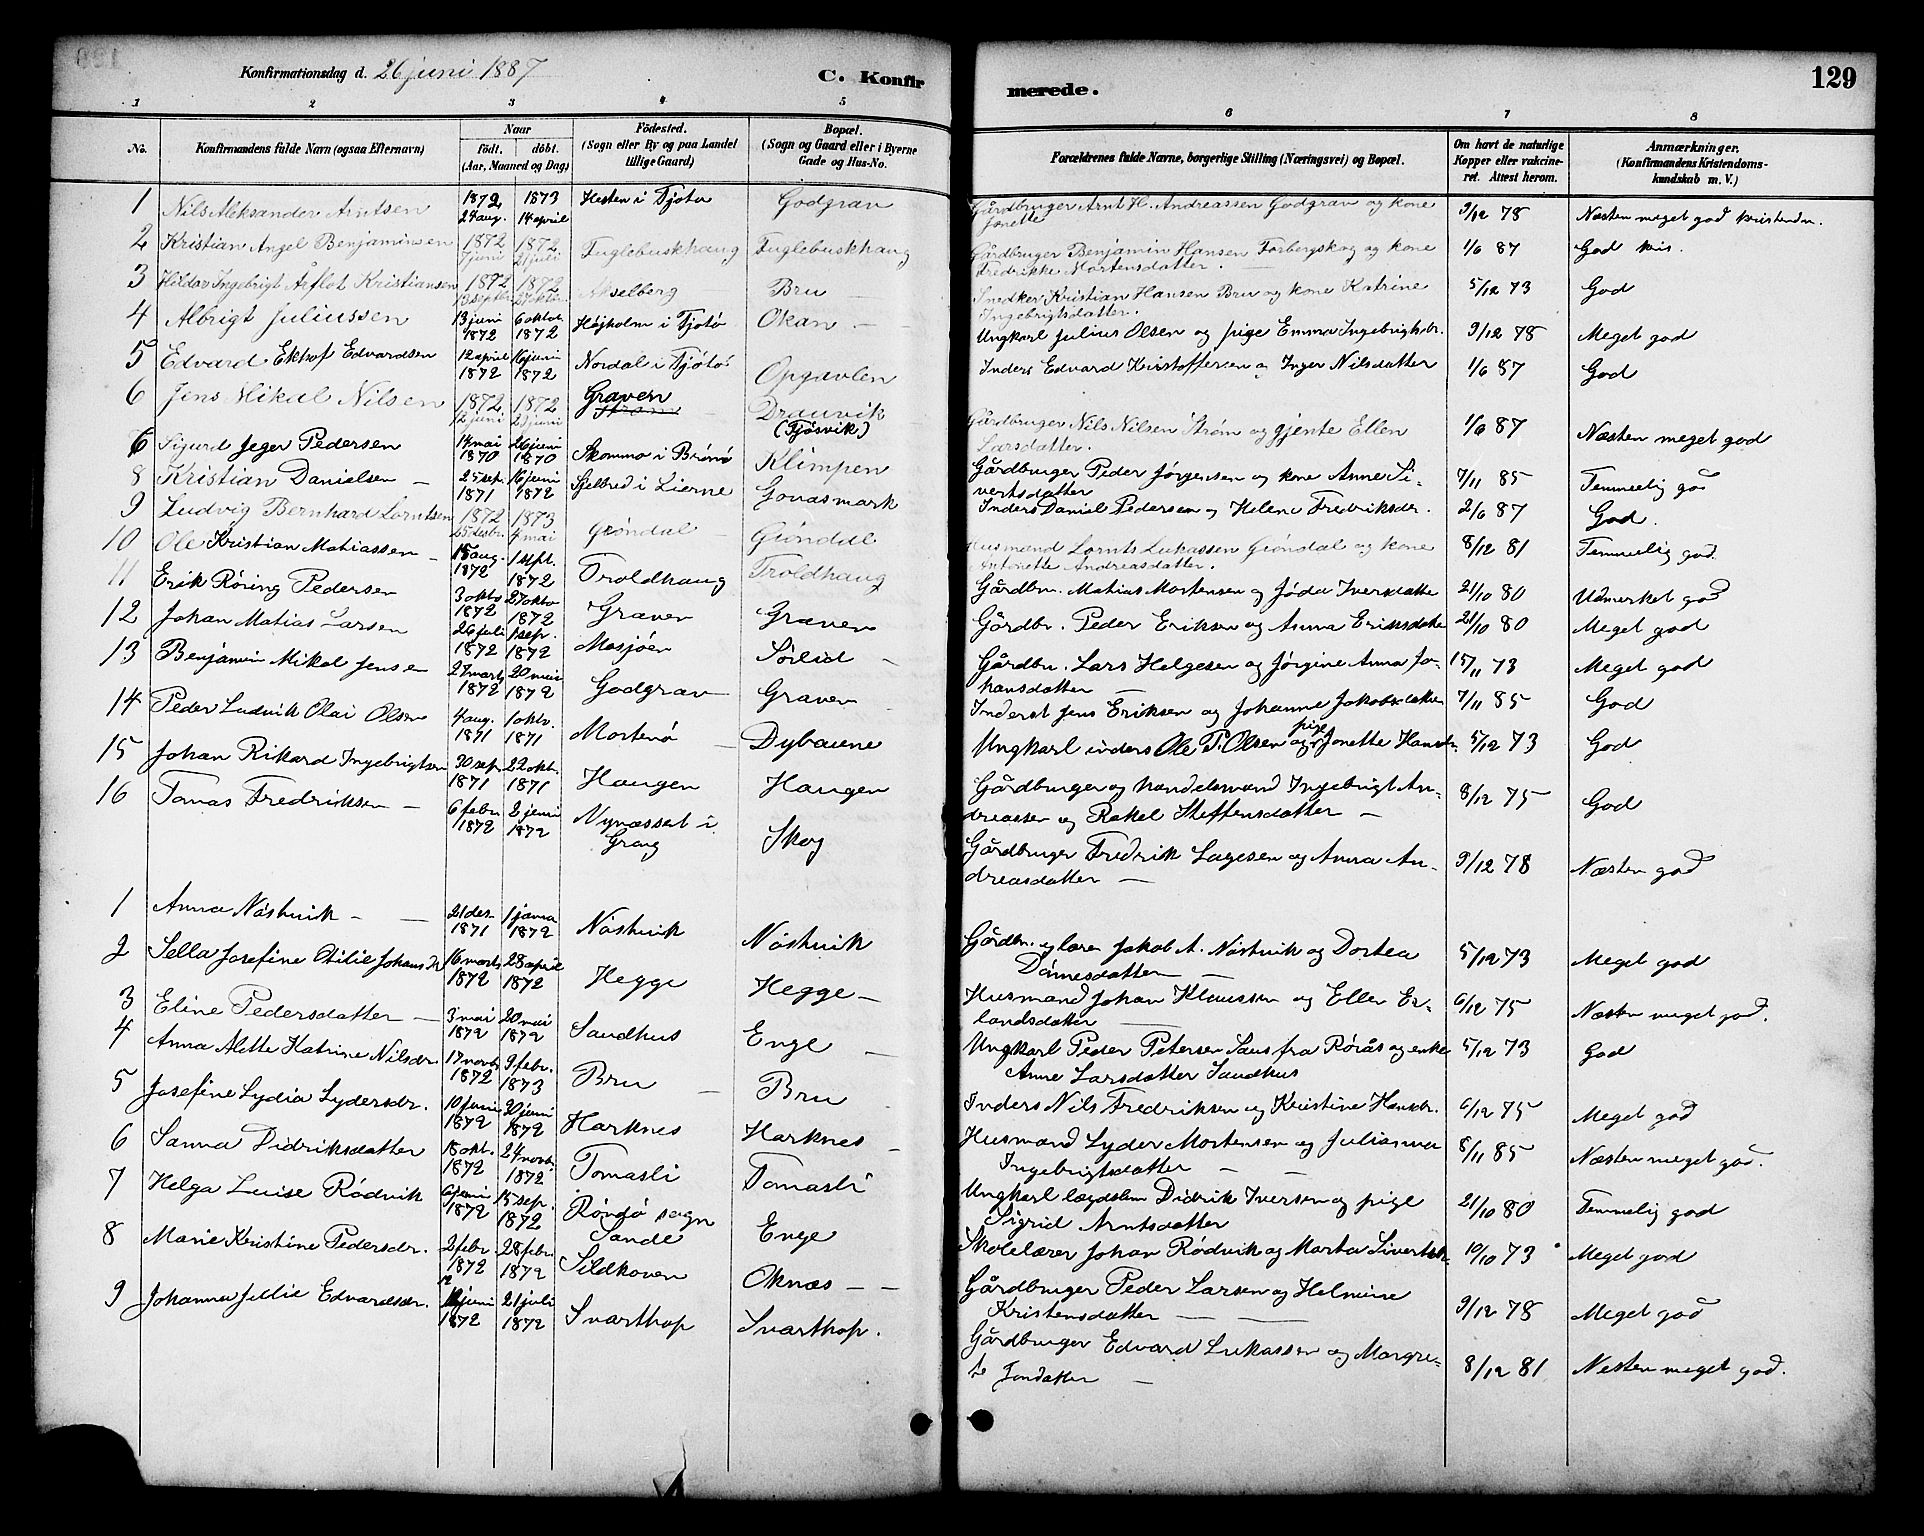 Konfirmationsdag d. 26 juni 1887
C. Konfirmerede.
129
1 2 3 4 5 6 7 8
No.
Konfirmandens fulde Navn (ogsaa Efternavn)
Naar
födt. döbt.
(Aar, Maaned og Dag)
Födested.
(Sogn eller By og paa Landet
tillige Gaard)
Bopæl.
(Sogn og Gaard eller i Byerne
Gade og Hus-No.
Forældrenes fulde Navne, borgerlige Stilling (Næringsvei) og Bopæl.
Om havt de naturlige
Kopper eller vakcine-
ret. Attest herom.
Anmærkninger.
(Konfirmandens Kristendoms-
kundskab m. V.)
1 Nils Aleksander Arntsen 1872 24 aug. 1873 14 april Hesten i Tjøtø Godgrav Gårdbruger Arnt H. Andreassen Godgrav og kone Jonette 9/12 78 Næsten meget god kristendm.
2 Kristian Angel Benjaminsen 1872 7 juni 1872 21 juli Fuglebuskhaug Fuglebuskhaug Gårdbruger Benjamin Hansen Forbergskog og kone Fredrikke Mortensdatter. 1/6 87 God kris.
3 Hildor Ingebrigt Arflot Kristiansen 1872 13 septbr 1872 27 oktbr. Akselberg Bru Snedker Kristian Hansen Bru og kone Katrine Ingebrigtsdatter. 5/12 73 God
4 Albrigt Juliussen 13 juni 1872 6 oktob. 1872 Højholm i Tjøtø Okan Ungkarl Julius Olsen og pige Emma Ingebrigtsdr. 9/12 78 Meget god
5 Edvard Ekhof Edvardsen 12 april 1872 16 juni 1872 Nordal i Tjøtø Opgavlen Inders Edvard Kristoffersen og Inger Nilsdatter 1/6 87 God
6 Jens Mikal Nilsen 1872 12 juni 1872 23 juni Graven Strøm Drauvik (Tjøsvik) Gårdbruger Nils Nilsen Strøm og gjente Ellen Larsdatter. 1/6 87 Næsten meget god
6 Sigurd Jeger Pedersen 14 mai 1870 26 juni 1870 Skommo i Brønø Klimpen Gårdbruger Peder Jørgensen og kone Anne Sivertsdatter 7/11 85 Temmelig god
8 Kristian Danielsen 25 sep. 1871 16 juni 1872 Sjelbred i Lierne Gonasmark Inders Daniel Pedersen og Helena Fredriksdr. 2/6 87 God.
9 Ludvig Bernhard Lorntsen 1872 25 desbr. 1873 4 mai Grøndal Grøndal Husmand Lornts Lukassen Grøndal og kone Antonette Andreasdatter. 8/12 81 Temmelig god.
10 Ole Kristian Matiassen 15 aug. 1872 1 sept. 1872 Troldhaug Troldhaug Gårdbr. Matias Mortensen og Jøda Iversdatte 21/10 80 Udmerket god
11 Erik Røring Pedersen 3 oktb 1872 27 oktb 1872 Graven Graven Gårdbr. Peder Eriksen og Anna Eriksdatte 21/10 80 Meget god
12 Johan Matias Larsen 26 juli 1872 1 sep. 1872 Mosjøen Sørlid Gårdbr. Lars Helgesen og Jørgine Anna Johansdatter 15/11 73 Meget god
13 Benjamin Mikal Jensen 27 marts 1872 20 mai 1872 Godgrav Graven Inderst Jens Eriksen og Johanne Jakobsdatter 7/11 85 God
14 Peder Ludvik Olai Olsen 4 aug. 1871 1 oktb. 1871 Mortenø Dybaune Ungkarl inders Ole P. Olsen og pige Jonette Hansdr. 5/12 73 God
15 Johan Rikard Ingebrigtsen 30 sep. 1871 22 okt. 1871 Haugen Haugen Gårdbruger og handelsmand Ingebrigt Andreassen og Rakel Steffensdatter 8/12 75 God
16 Tomas Fredriksen 6 febr 1872 2 juni 1872 Nynæsset i Grang Skog Gårdbruger Fredrik Lagesen og Anna Andreasdatter 9/12 78 Næsten god
1 Anna Nøstvik 21 des 1871 1 janua 1872 Nøstvik Nøstvik Gårdbr. og lærer Jakob A. Nøstvik og Dortea Dønnesdatter 5/12 73 Meget god
2 Sella Josefine Otilie Johansdr 16 marts 1872 28 april 1872 Hegge Hegge Husmand Johan Klaussen og Ellen Erlandsdatter 6/12 75 Næsten meget god.
3 Eline Pedersdatter 3 mai 1872 20 mai 1872 Sandhus Enge Ungkarl Peder Petersen Saus fra Rørås og enke Anne Larsdatter Sandhus 5/12 73 God
4 Anna Alette Katrine Nilsdr. 17 novb 1872 9 febr. 1873 Bru Bru Inders Nils Fredriksen og Kristine Hansdr. 6/12 75 Meget god
5 Josefine Lydia Lydersdr. 10 juni 1872 30 juni 1872 Harknes Harknes Husmand Lyder Mortensen og Julianna Ingebrigtsdatter 8/11 85 Næsten meget god.
6 Sanna Didriksdatter 18 okt. 1872 24 novb. 1872 Tomasli Tomasli Ungkarl lægdslem Didrik Iversen og pige Sigrid Arntsdatter 21/10 80 Temmelig god
7 Helga Luise Rødvik 6 juni 1872 15 sep. 1872 Røndø sogn Sande Enge Skolelærer Johan Rødvik og Marta Sivertsdr. 10/10 73 Meget god
8 Marie Kristine Pedersdr. 2 febr 1872 28 febr. 1872 Sildhoven Oknæs Gårdbruger Peder Larsen og Helmine Kristensdatter 9/12 78 Meget god
9 Johanna Jellie Edvardsdr. 12 juni 1872 21 juli 1872 Svarthop Svarthop. Gårdbruger Edvard Lukassen og Margrete Jondatter 8/12 81 Nesten meget god.